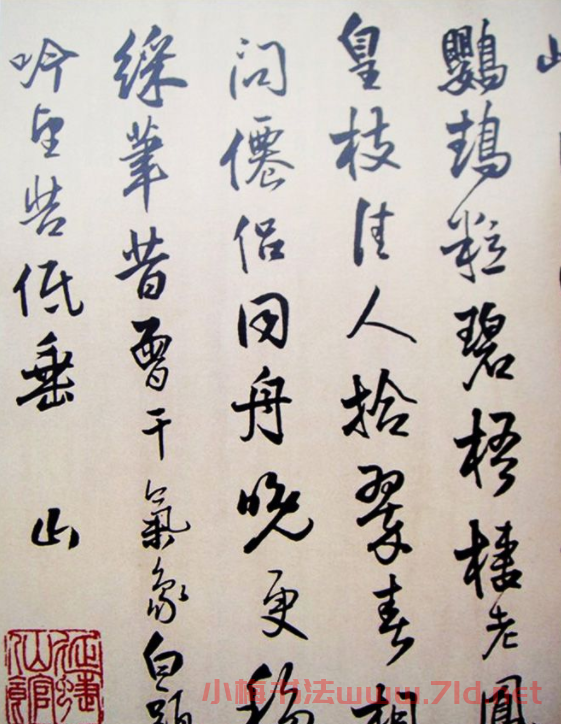 鸚鵡粒碧梧棲老鳳
皇枝佳人拾翠春相
問僊侶同舟晚更移
綵筆昔曾干氣象白頭
吟望苦低垂 山
小梅书法www.7ld.net